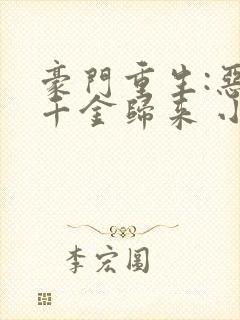 豪門重生:惡
千金歸來 小
李宏圓